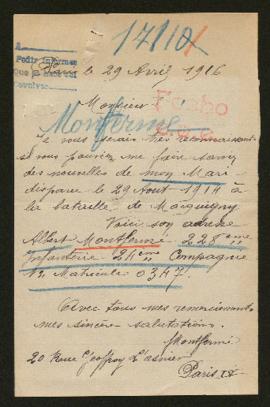 17110
Pedir informes
le 29 Avril 1916
Monsieur
Montferme
Je vous serais très reconnaissante
si vous pouviez me faire savoir
des nouvelles de mon Mari
disparu le 29 Aout 1914 à
la bataille de
Voici son adresse
Albert Montferme 228ème
Infanterie 24ème Compagnie
Matricule 0347
Avec tous mes remerciements
mes sincères salutations
Montfermé
20 Rue Geoffroy L'asnier
Paris